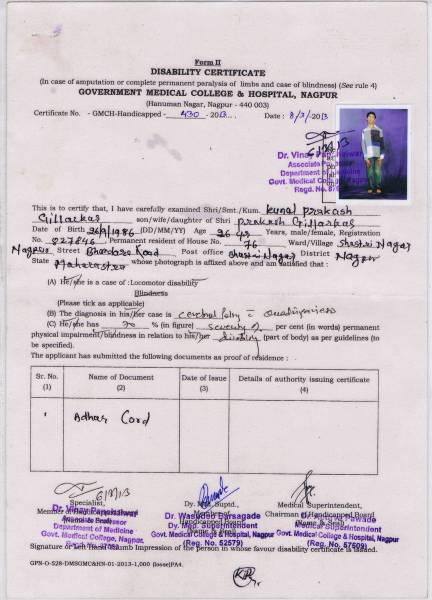 Form II
DISABILITY CERTIFICATE
(In case of amputation or complete permanent paralysis of limbs and case of blindness) (See rule 4)
GOVERNMENT MEDICAL COLLEGE & HOSPITAL, NAGPUR
(Hanuman Nagar, Nagpur - 440 003)
Certificate No. - GMCH-Handicapped - 430 - 2013.. Date : 8/3/2013
Dr. Vinay
Associate
Department of Medicine
Govt. Medical College, Nagpur
Regd. No.
This is to certify that, I have carefully examined Shri/Smt./Kum. kunal prakash
Gillarkar son/wife/daughter of Shri prakash Gillarkar
Date of Birth 26/1/1986 (DD/MM/YY) Age 26 yrs Years, male/female, Registration
No. 027846 Permanent resident of House No. 76 Ward/Village Shastri Nagar
Nagpur Street Bhandara Road Post office Shastri Nagar District Nagpur
State Maharastra whose photograph is affixed above and am satisfied that :
(A) He/she is a case of : Locomotor disability
Blindness
(Please tick as applicable)
(B) The diagnosis in his/her case is cerebral palsy
(C) He/she has 70 % (in figure) seventy per cent (in words) permanent
physical impairment/blindness in relation to his/her disability (part of body) as per guidelines (to
be specified).
The applicant has submitted the following documents as proof of residence :
Sr. No. Name of Document Date of Issue Details of authority issuing certificate
(1) (2) (3) (4)
1 Adhar Card
Specialist, Dy. Med. Supdt., Medical Superintendent,
Member of Handicapped Board Member of Chairman of Handicapped Board
Handicapped Board
(Name & Seal) (Name & Seal) (Name & Seal)
Associate Professor
Department of Medicine
Govt. Medical College, Nagpur
Dr. Wasudeo Barsagade
Dy. Med. Superintendent
Govt. Medical College & Hospital, Nagpur
(Reg. No. 52579)
Medical Superintendent
Govt. Medical College & Hospital, Nagpur
(Reg. No. 57609)
Signature or Left Hand Thumb Impression of the person in whose favour disability certificate is issued.
GPN-O-528-DMSGMC&HN-01-2013-1,000 (loose)PA4.